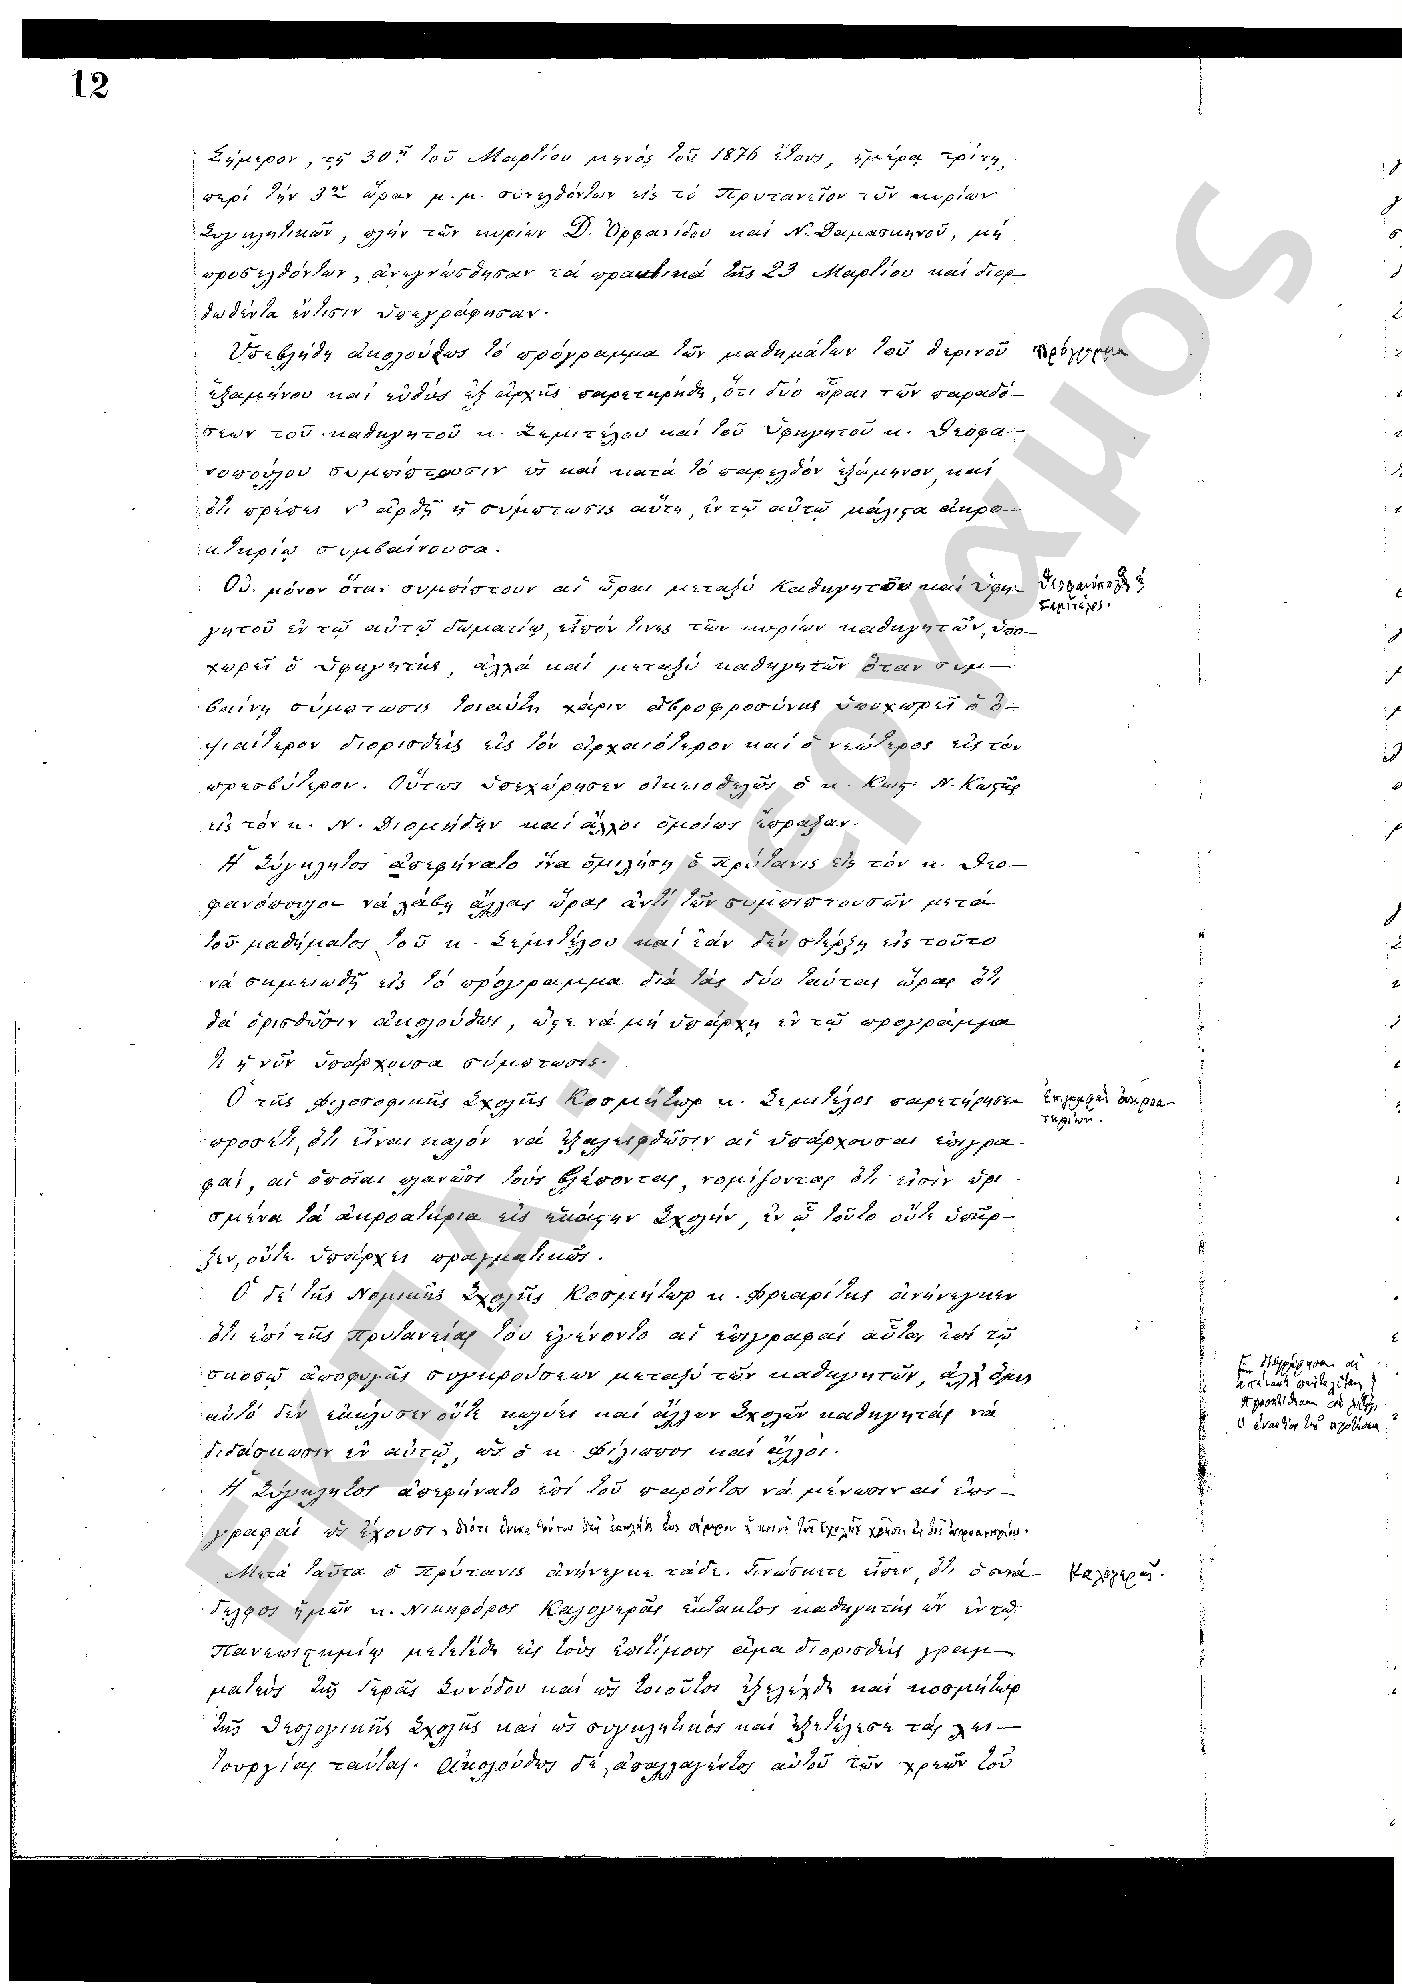 12
Σήμερον, τῇ 30ῃ τοῦ Μαρτίου μηνός τοῦ 1876 ἔτους, ἡμέρᾳ τρίτῃ,
περί τήν 3ην ὥραν μ.μ. συνελθόντων εἰς τό Πρυτανεῖον τῶν κυρίων
Συγκλητικῶν, πλήν τῶν κυρίων Δ. Ὀρφανίδου καί Ν. Δαμασκηνοῦ, μή
προσελθόντων, ἀνεγνώσθησαν τά πρακτικά τῆς 23 Μαρτίου καί διορ-
θωθέντα ἔντισιν ὑπεγράφησαν.
Ὑπεβλήθη ἀκολούθως τό πρόγραμμα τῶν μαθημάτων τοῦ θερινοῦ
Πρόγραμμα
ἑξαμήνου καί εὐθύς ἐξ ἀρχῆς παρετηρήθη, ὅτι δύο ὧραι τῶν παραδό-
σεων τοῦ καθηγητοῦ κ. Σεμιτέλου καί τοῦ ὑφηγητοῦ κ. Θεοφα-
νοπούλου συμπίπτουσιν ὡς καί κατά τό παρελθόν ἑξάμηνον, καί
ὅτι πρέπει ν' ἀρθῇ ἡ σύμπτωσις αὕτη, ἐν τῷ αὐτῷ μάλιστα ἀκρο-
ατηρίῳ συμβαίνουσα.
Οὐ μόνον ὅταν συμπίπτουν αἱ ὧραι μεταξύ καθηγητοῦ καί ὑφη-
Θεοφανόπουλος
Σεμιτέλος.
γητοῦ ἐν τῷ αὐτῷ δωματίῳ, εἶπόν τινες τῶν κυρίων καθηγητῶν, ὑπο-
χωρεῖ ὁ ὑφηγητής, ἀλλά καί μεταξύ καθηγητῶν ὅταν συμ-
βαίνῃ σύμπτωσις τοιαύτη χάριν ἁβροφροσύνης ὑποχωρεῖ ὁ ὀ-
ψιαίτερον διορισθείς εἰς τόν ἀρχαιότερον καί ὁ νεώτερος εἰς τόν
πρεσβύτερον. Οὕτως ὑπεχώρησεν οἰκειοθελῶς ὁ κ. Κωστ. Ν. Κωστῆς
εἰς τόν κ. Ν. Διομήδην καί ἄλλοι ὁμοίως ἔπραξαν.
Ἡ Σύγκλητος ἀπεφήνατο ἵνα ὁμιλήσῃ ὁ Πρύτανις εἰς τόν κ. Θεο-
φανόπουλον νά λάβῃ ἄλλας ὥρας ἀντί τῶν συμπιπτουσῶν μετά
τοῦ μαθήματος τοῦ κ. Σεμιτέλου καί ἐάν δέν στέρξῃ εἰς τοῦτο
νά σημειωθῇ εἰς τό πρόγραμμα διά τάς δύο ταύτας ὥρας ὅτι
θά ὁρισθῶσιν ἀκολούθως, ὥστε νά μή ὑπάρχῃ ἐν τῷ προγράμμα
τι ἡ νῦν ὑπάρχουσα σύμπτωσις.
Ὁ τῆς Φιλοσοφικῆς Σχολῆς Κοσμήτωρ κ. Σεμιτέλος παρετήρησεν
Ἐπιγραφαί ἀκροα-
τηρίων.
προσέτι, ὅτι εἶναι καλόν νά ἐξαλειφθῶσιν αἱ ὑπάρχουσαι ἐπιγρα-
φαί, αἱ ὁποῖαι πλανῶσι τούς βλέποντας, νομίζοντας ὅτι εἰσίν ὡρι-
σμένα τά ἀκροατήρια εἰς ἑκάστην Σχολήν, ἐν ᾧ τοῦτο οὔτε ὑπῆρ-
ξεν, οὔτε ὑπάρχει πραγματικῶς.
Ὁ δέ τῆς Νομικῆς Σχολῆς Κοσμήτωρ κ. Φρεαρίτης ἀνήνεγκεν
ὅτι ἐπί τῆς Πρυτανείας του ἐγένοντο αἱ ἐπιγραφαί αὗται ἐπί τῷ
σκοπῷ ἀποφυγῆς συγκρούσεων μεταξύ τῶν καθηγητῶν, ἀλλ' ὅμως
αὐτό δέν ἐκώλυσεν οὔτε κωλύει καί ἄλλων Σχολῶν καθηγητάς νά
διδάσκωσιν ἐν αὐτῷ, ὡς ὁ κ. Φίλιππος καί ἄλλοι.
Ἡ Σύγκλητος ἀπεφήνατο ἐπί τοῦ παρόντος νά μένωσιν αἱ ἐπι-
γραφαί ὡς ἔχουσι,
Μετά ταῦτα ὁ Πρύτανις ἀνήνεγκε τάδε. Γινώσκετε εἶπεν, ὅτι ὁ συνά-
Καλογερᾶς.
δελφος ἡμῶν κ. Νικηφόρος Καλογερᾶς ἔκτακτος καθηγητής ὤν ἐν τῷ
Πανεπιστημίῳ μετετέθη εἰς τούς ἐπιτίμους ἅμα διορισθείς γραμ-
ματεύς τῆς Ἱερᾶς Συνόδου καί ὡς τοιοῦτος ἐξελέχθη καί κοσμήτωρ
τῆς Θεολογικῆς Σχολῆς καί ὡς συγκλητικός καί ἐξετέλεσε τάς λει-
τουργίας ταύτας. Ἀκολούθως δέ, ἀπαλλαγέντος αὐτοῦ τῶν χρεῶν τοῦ
ΕΚΠΑ :: Πέργαμος